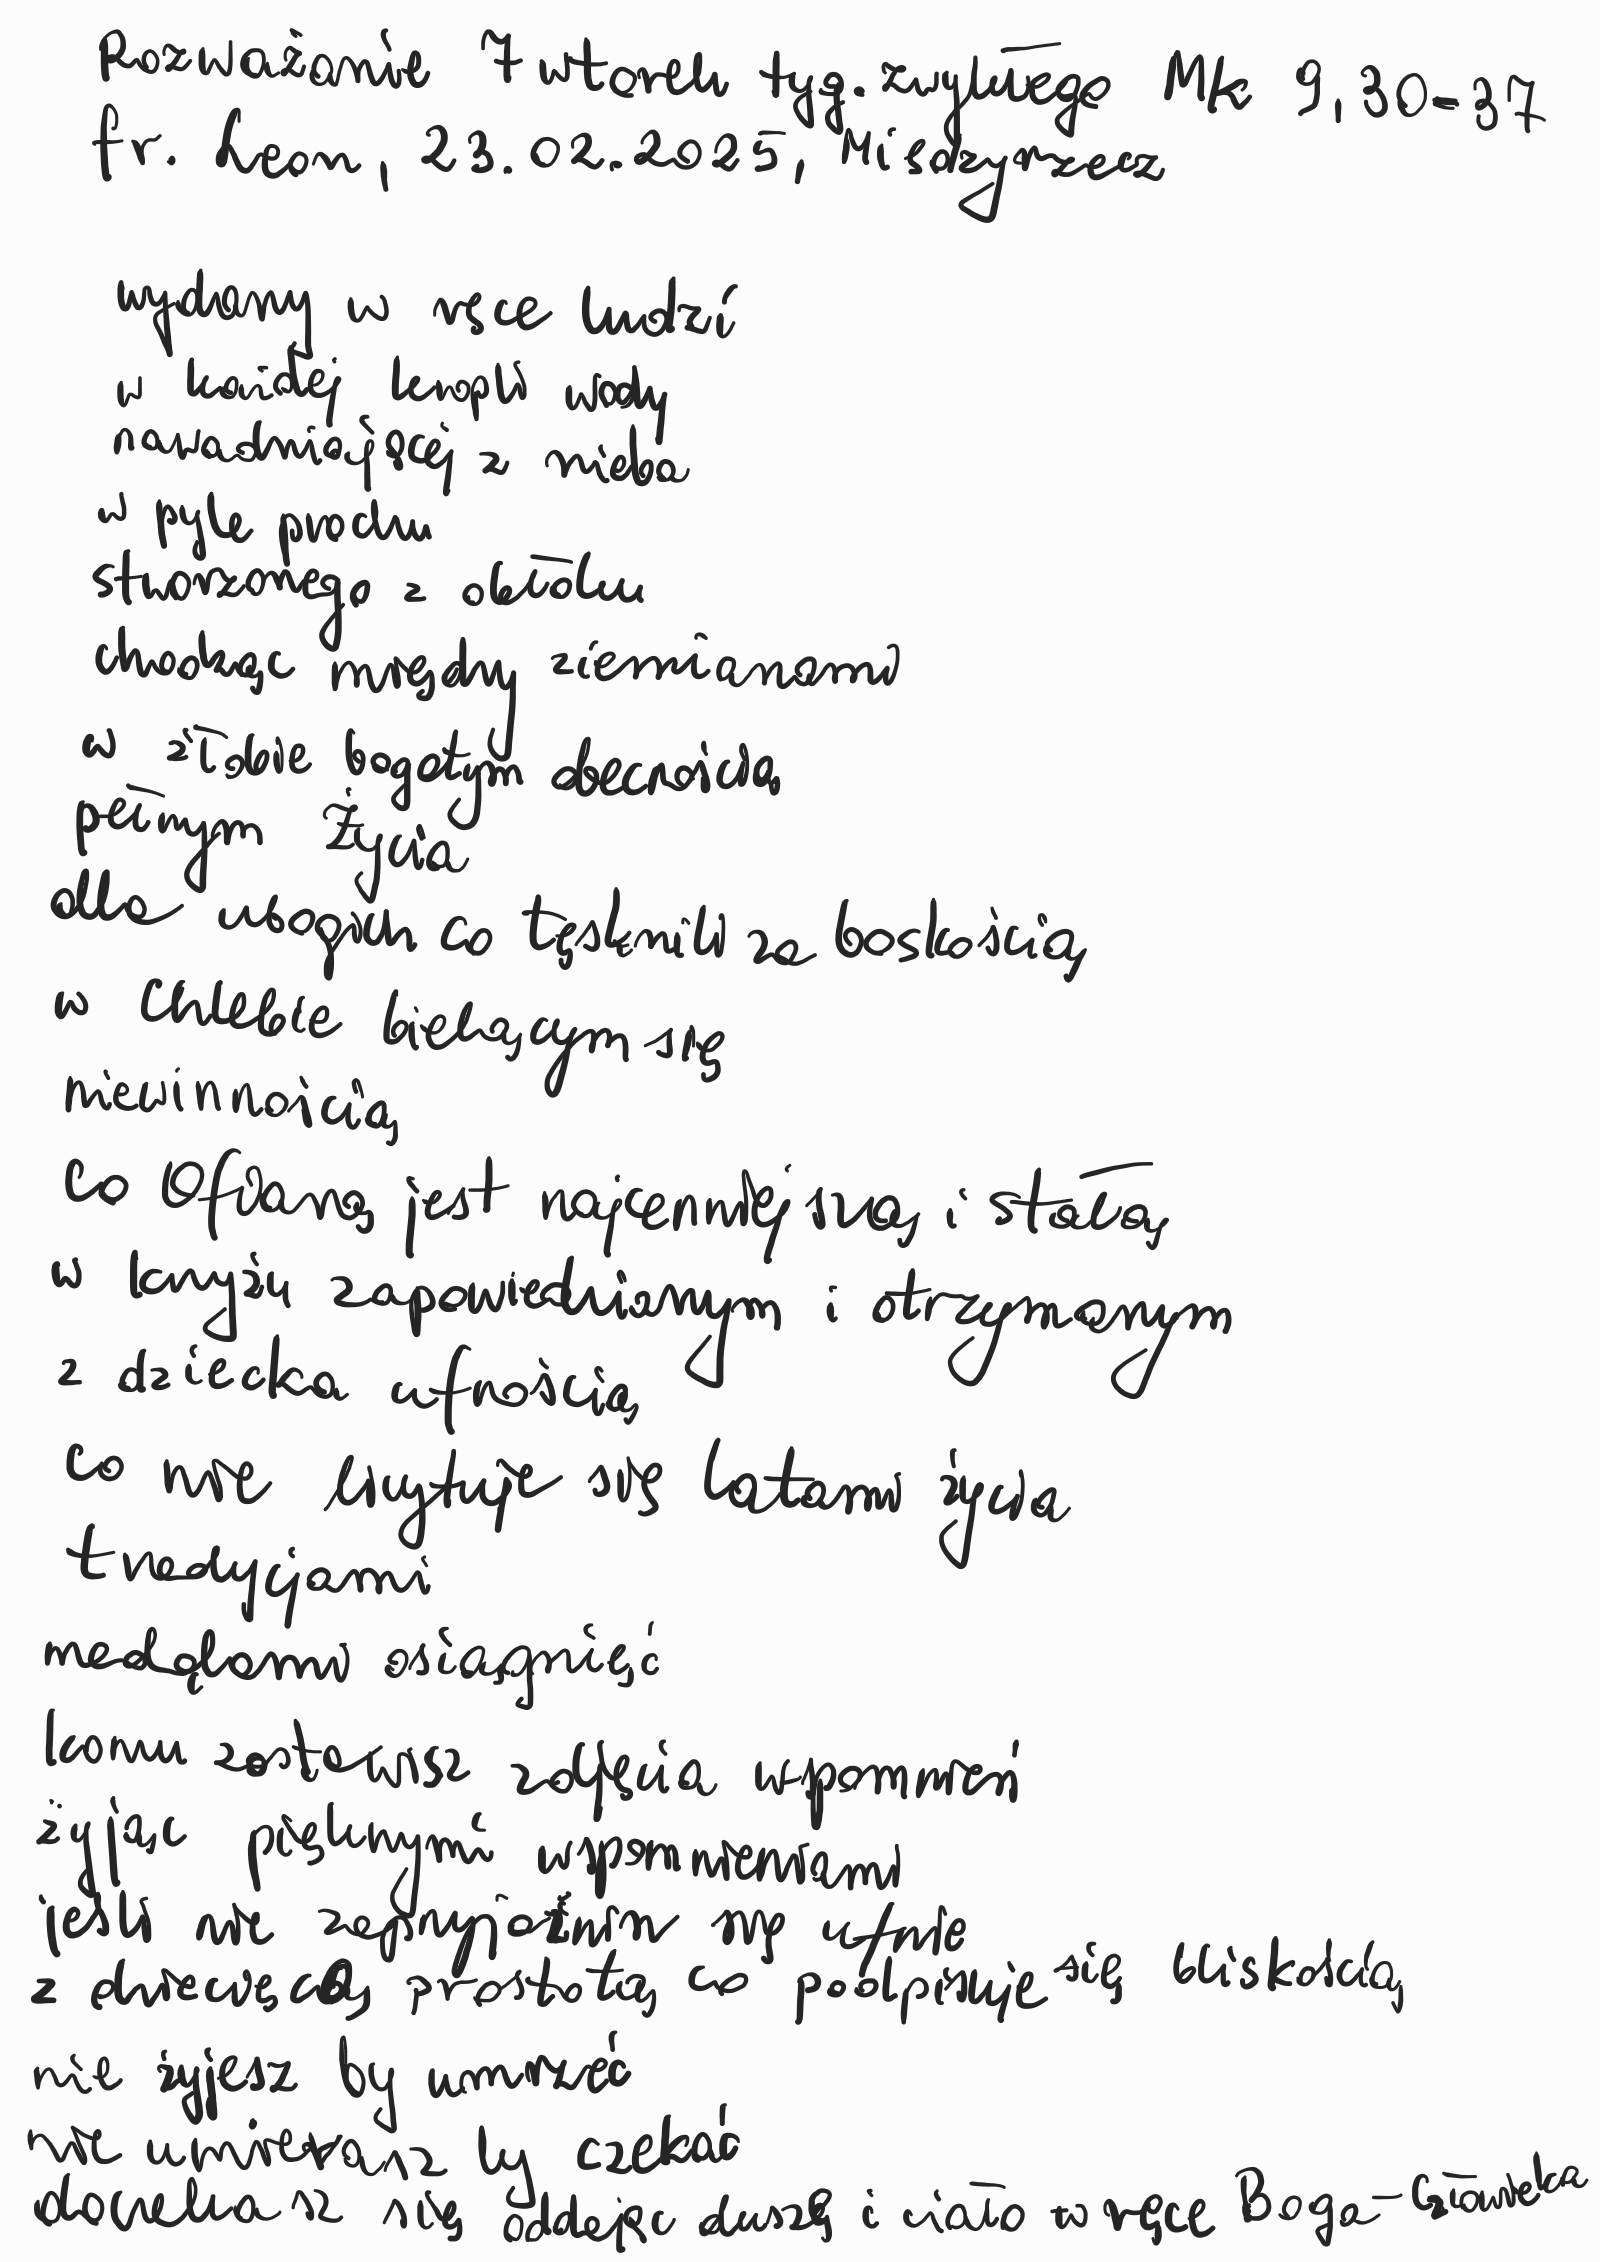 Rozważanie 7 wtorek tyg. zwykłego Mk 9,30-37
fr. Leon, 23.02.2025, Międzyrzecz
wydany w ręce ludzi
w każdej kropli wody
nawadniającej z nieba
w pyle prochu
stworzonego z obłoku
chodząc między ziemianami
w żłobie bogatym obecnością
pełnym Życia
dla ubogich co tęsknili za boskością
w Chlebie bielącym się
niewinnością
co Ofiarą jest najcenniejszą i stałą
w krzyżu zapowiedzianym i otrzymanym
z dziecka ufnością
co nie liczy się latami życia
tradycjami
medalami osiągnięć
komu zostawisz zdjęcia wspomnień
żyjąc pięknymi wspomnieniami
jeśli nie zaprzyjaźnim się ufnie
z dziecięcą prostotą co podpisuje się bliskością
nie żyjesz by umrzeć
nie umierasz by czekać
doczekasz się oddając duszę i ciało w ręce Boga-Człowieka